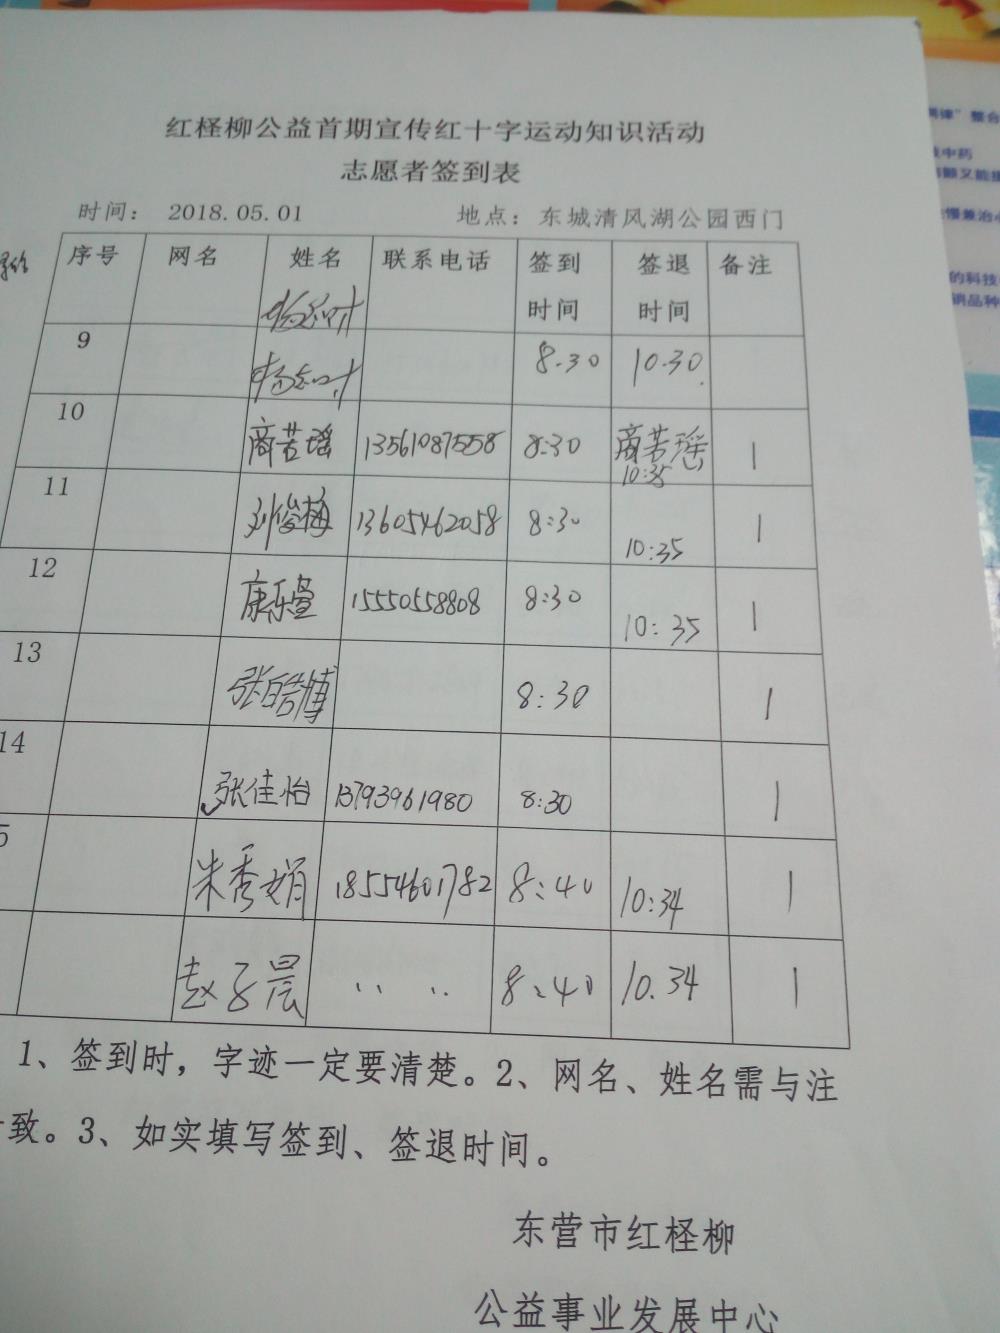 红柽柳公益首期宣传红十字运动知识活动
志愿者签到表
时间： 2018.05.01 地点：东城清风湖公园西门
序号 网名 姓名 联系电话 签到时间 签退时间 备注
9 8.30 10.30
10 商芸瑶 13561087558 8:30 商芸瑶 10:35 1
11 刘俊梅 13605462058 8:30 10:35 1
12 康乐萱 15550558808 8:30 10:35 1
13 张皓博 8:30 1
14 张佳怡 13793961980 8:30 1
5 朱秀娟 18554601782 8:40 10:34 1
赵子晨 ·· ·· 8:40 10.34 1
1、签到时，字迹一定要清楚。2、网名、姓名需与注
致。3、如实填写签到、签退时间。
东营市红柽柳
公益事业发展中心
整合
中药
又能
慢兼治
的科技
销品种